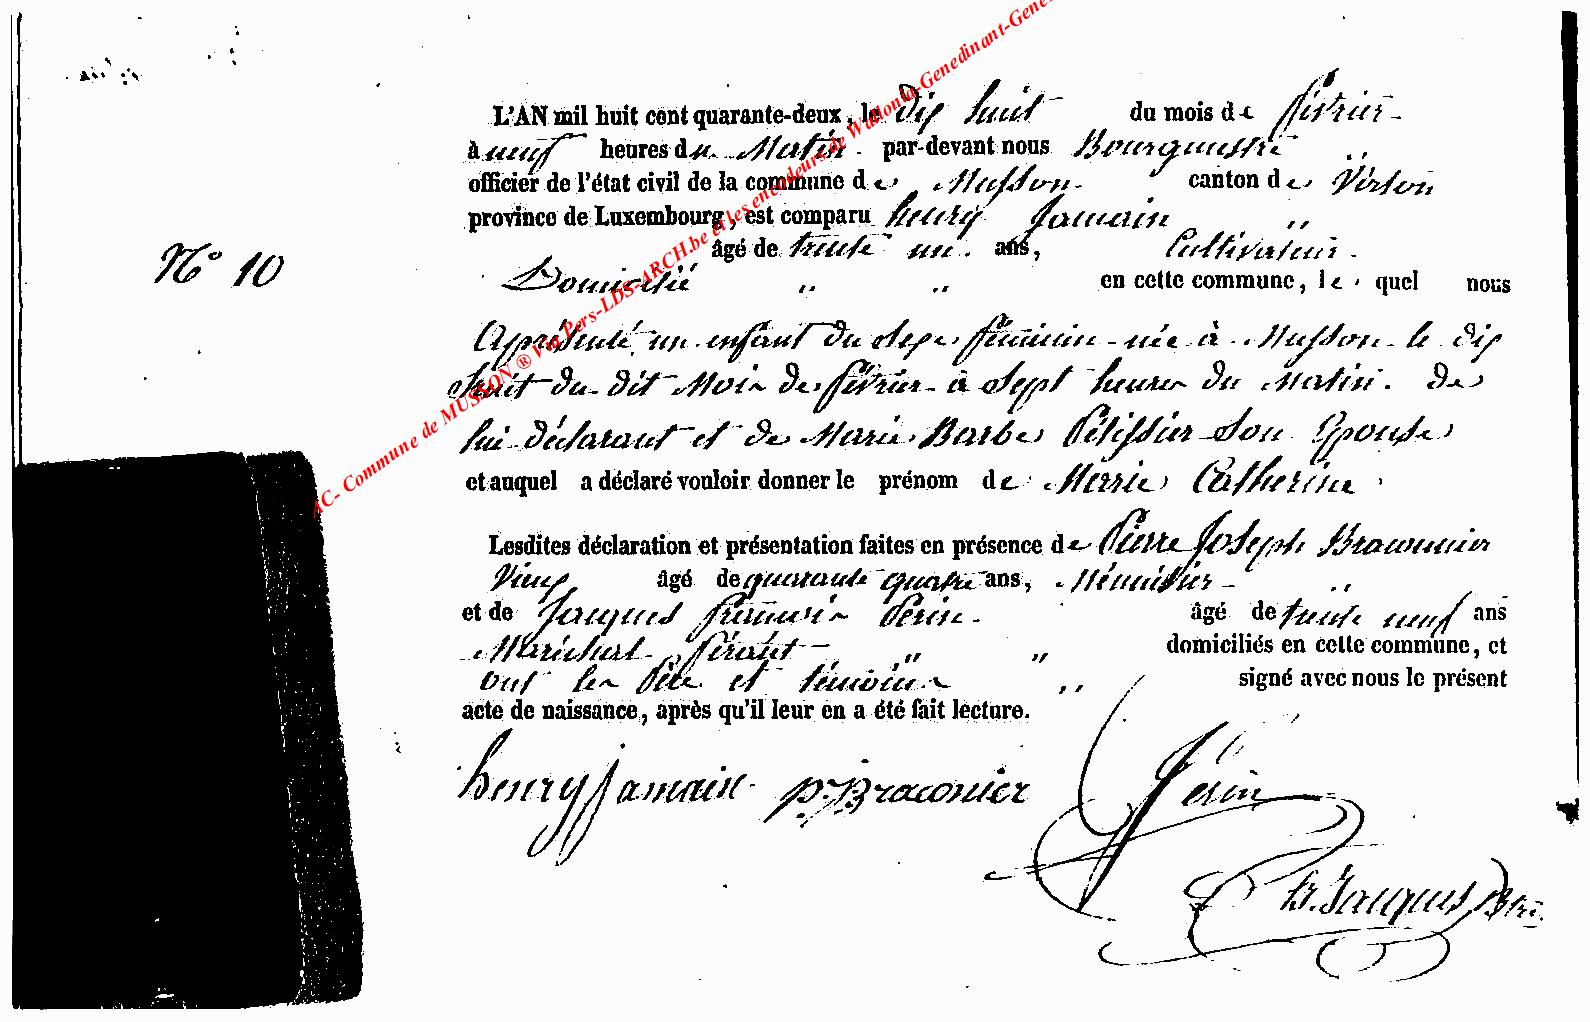 L'AN mil huit cent quarante-deux, le Dix huit du mois de février
à neuf heures du Matin par-devant nous Bourguestre
officier de l'état civil de la commune de Musson canton de Virton
province de Luxembourg, est comparu henry Jamain
âgé de trente un ans, Cultivateur
N° 10
Domicilié en cette commune, le quel nous
Aprésenté un enfant du sexe féminin née à Musson le dix
huit du dit Mois de février à sept heures du Matin de
lui déclarant et de Marie Barbe Pétissier son Epouse
et auquel a déclaré vouloir donner le prénom de Marie Catherine
Lesdites déclaration et présentation faites en présence de Pierre Joseph Braconnier
Vieux âgé de quarante quatre ans, Ménuisier
et de Jacques François Perin âgé de trente neuf ans
Maréchal férant domiciliés en cette commune, et
ont les Père et témoins signé avec nous le présent
acte de naissance, après qu'il leur en a été fait lecture.
henry Jamain p. J. Braconier Perin
Jacques
AC- Commune de MUSSON ® Via Pers-LDS-ARCH.be et les encodeurs de Wallonia-Genedinant-Gene